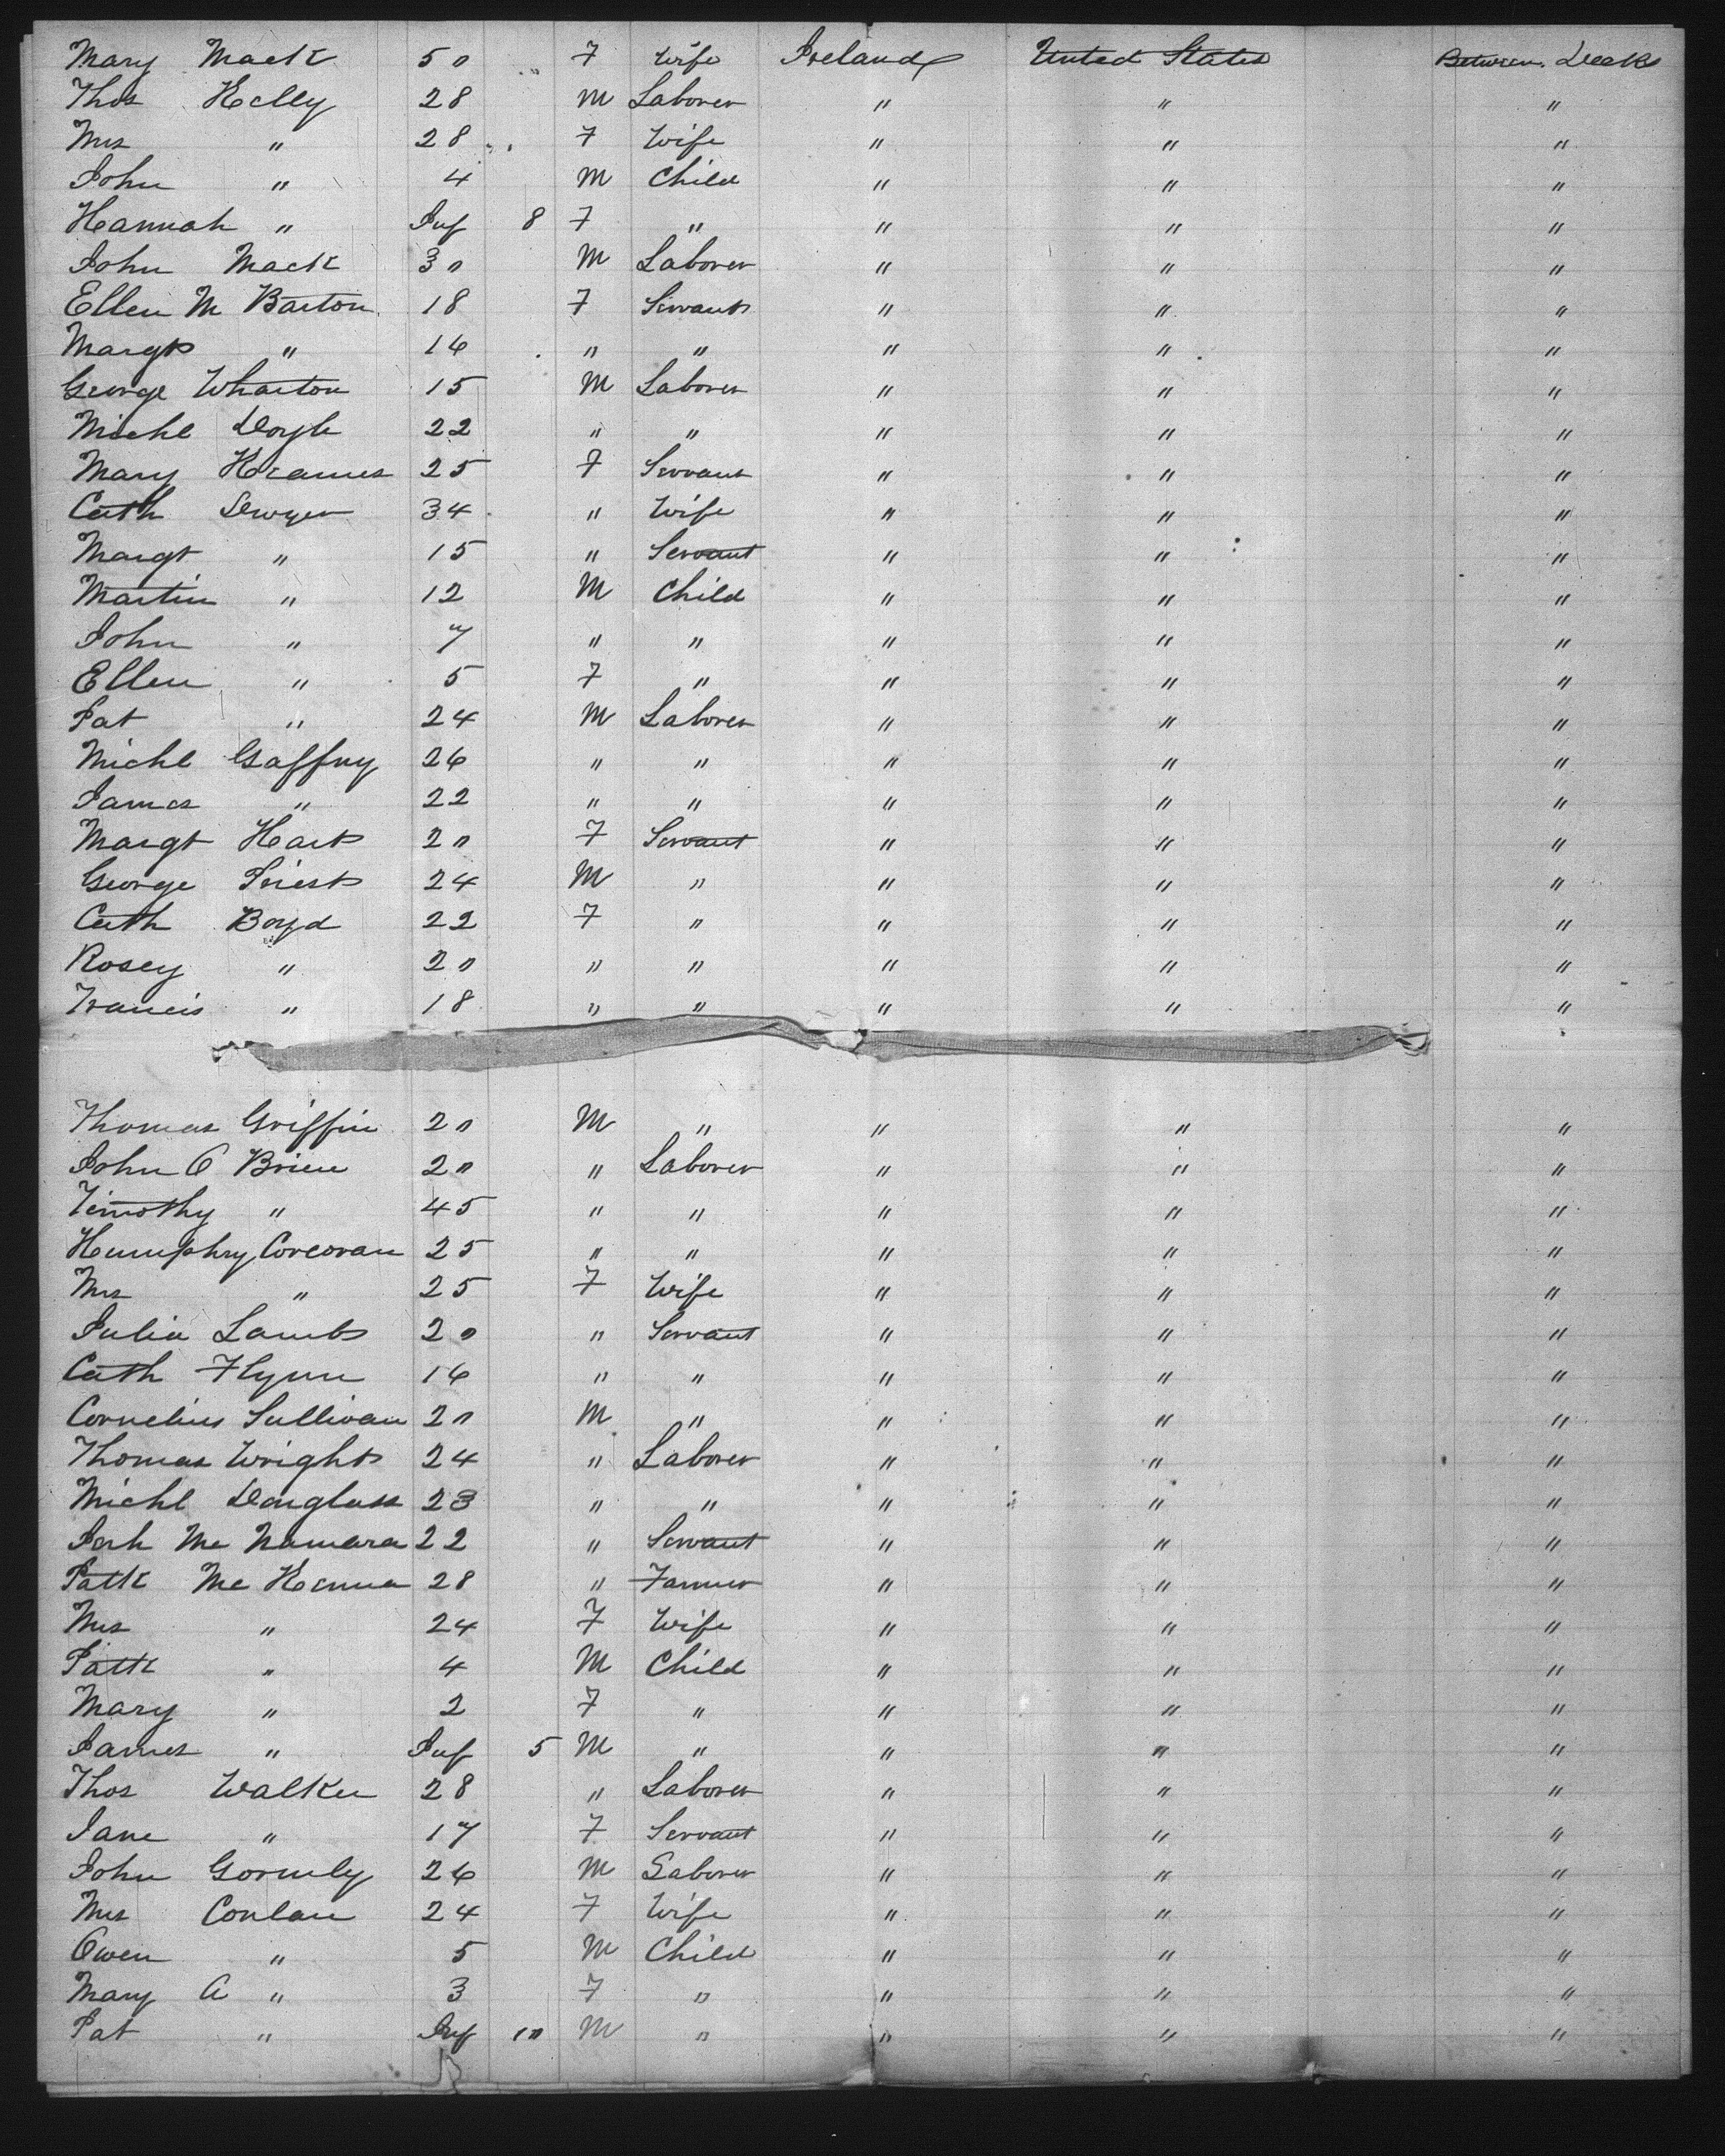 Mary Mack 50 F Wife Ireland United States Between Decks
Thos Kelly 28 M Laborer " " "
Mrs " 28 F Wife " " "
John " 4 M Child " " "
Hannah " Inf 8 F " " " "
John Mack 30 M Laborer " " "
Ellen M Barton 18 F Servant " " "
Margt " 16 " " " " "
George Wharton 15 M Laborer " " "
Michl Doyle 22 " " " " "
Mary Kearnes 25 F Servant " " "
Cath Dwyer 34 " Wife " " "
Margt " 15 " Servant " " "
Martin " 12 M Child " " "
John " 7 " " " " "
Ellen " 5 F " " " "
Pat " 24 M Laborer " " "
Michl Gaffny 26 " " " " "
James " 22 " " " " "
Margt Hart 20 F Servant " " "
George Priest 24 M " " " "
Cath Boyd 22 F " " " "
Rosey " 20 " " " " "
Francis " 18 " " " " "
Thomas Griffin 20 M " " " "
John O Brien 20 " Laborer " " "
Timothy " 45 " " " " "
Humphry Corcoran 25 " " " " "
Mrs " 25 F Wife " " "
Julia Lamb 20 " Servant " " "
Cath Flynn 16 " " " " "
Cornelius Sullivan 20 M " " " "
Thomas Wright 24 " Laborer " " "
Michl Douglass 23 " " " " "
Mc Namara 22 " Servant " " "
Patk Mc Kenna 28 " Farmer " " "
Mrs " 24 F Wife " " "
Patk " 4 M Child " " "
Mary " 2 F " " " "
James " Inf 5 M " " " "
Thos Walker 28 " Laborer " " "
Jane " 17 F Servant " " "
John Gormly 26 M Laborer " " "
Mrs Conlan 24 F Wife " " "
Owen " 5 M Child " " "
Mary A " 3 F " " " "
Pat " Inf 10 M " " " "